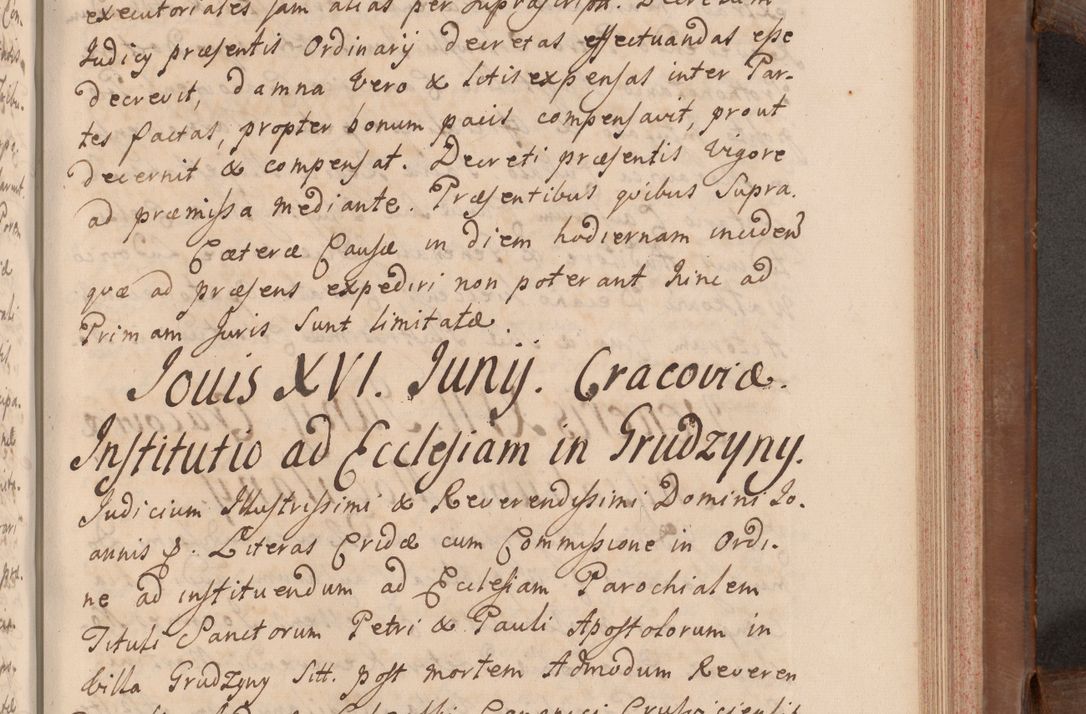 executoriales jam alias per suprascript. Decretum
Judicij præsentis Ordinarij decretas effectuandas esse
decrevit, damna Vero & litis expensas inter Par-
tes factas, propter bonum pacis compensavit, prout
decernit & compensat. Decreti præsentis Vigore
ad præmissa mediante. Præsentibus quibus Supra.
Cæteræ Causæ in diem hodiernam inciden
quæ ad præsens expediri non poterant hinc ad
Primam Juris Sunt limitatæ.
Jouis XVI. Junij. Cracoviæ.
Institutio ad Ecclesiam in Grudzyny.
Judicium Illustrissimi & Reverendissimi Domini Jo-
annis p. Literas Cridæ cum Commissione in Ordi-
ne ad instituendum ad Ecclesiam Parochialem
Tituli Sanctorum Petri & Pauli Apostolorum in
Villa Grudzyny Sitt. post mortem Admodum Reveren
Canonici